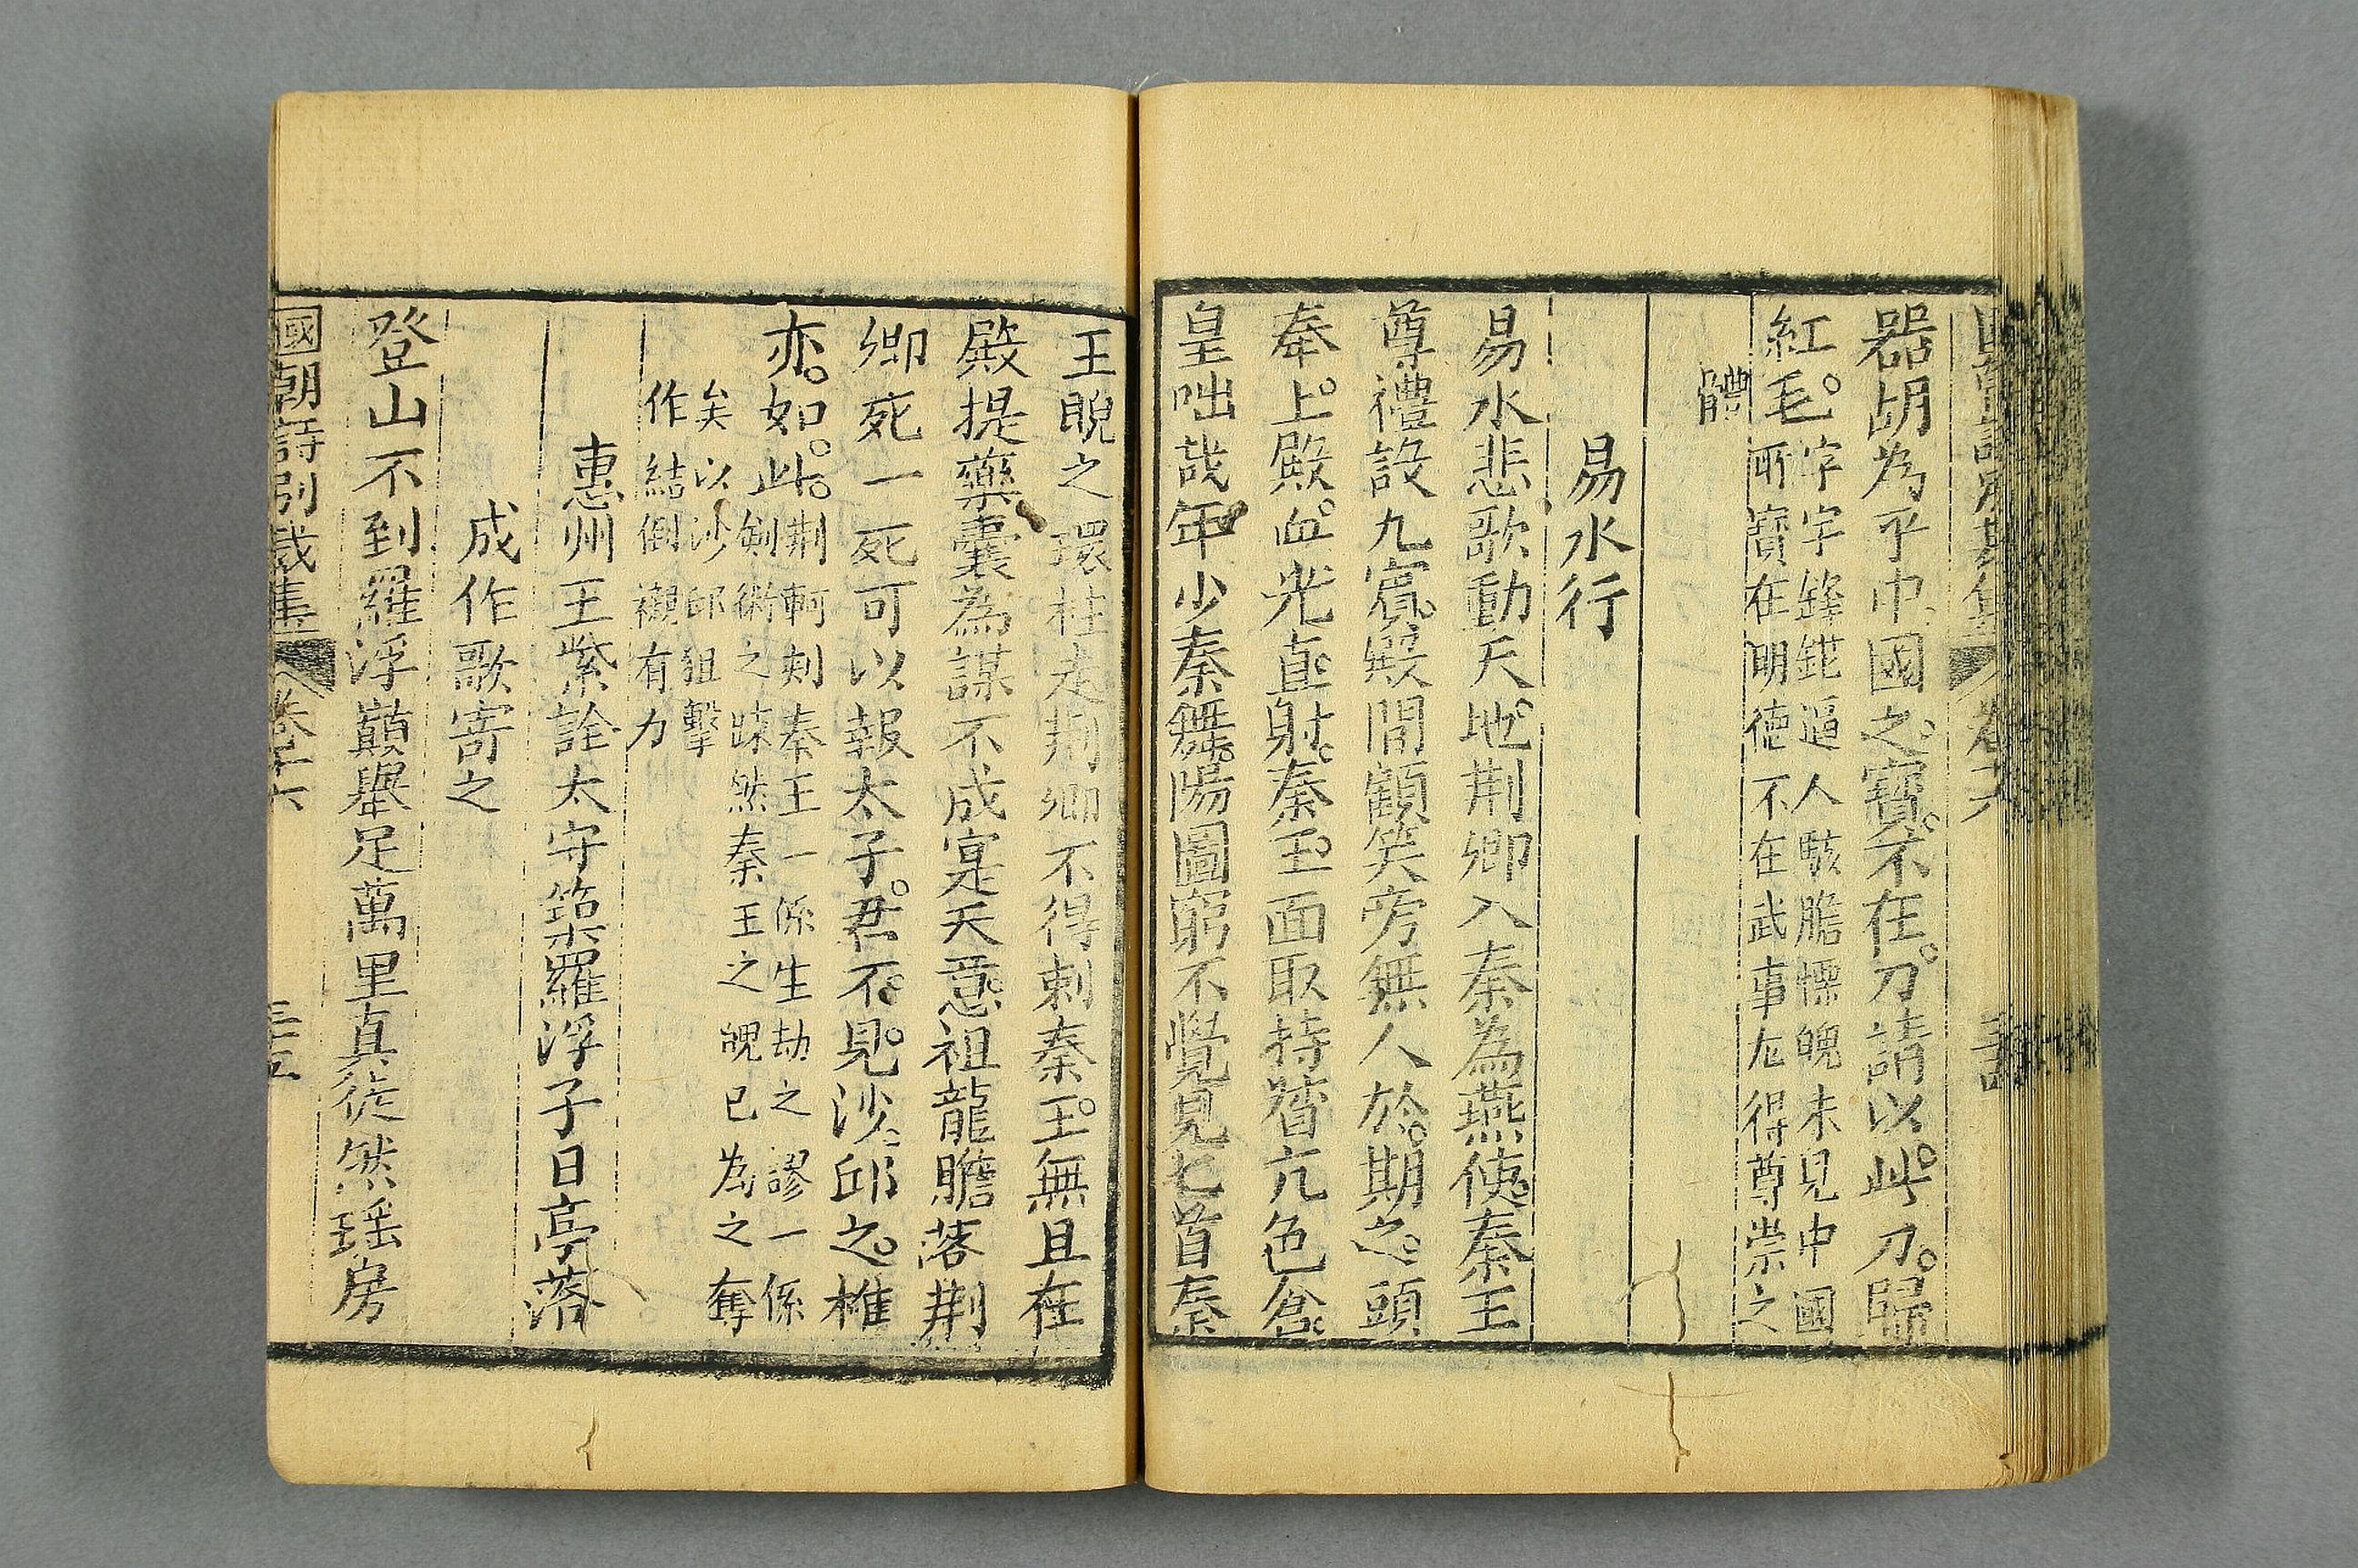 器胡為乎中國之寶不在刀請以此刀歸
紅毛
字字鋒鋩逼人駭膽慄魄未見中國
所寶在明德不在武事尤得尊崇之
體
易水行
易水悲歌動天地荆卿入秦為燕使秦王
尊禮設九賓殿間顧笑旁無人於期之頭
奉上殿血光直射秦王面取持督亢色倉
皇咄哉年少秦舞陽圖窮不覺見匕首秦
王睨之環柱走荆卿不得刺秦王無且在
殿提藥囊為謀不成寔天意祖龍膽落荆
卿死一死可以報太子君不見沙邱之椎
亦如此
荆軻刻秦王一係生劫之謬一係
劍術之疎然秦王之魄已為之奪
矣以沙邱狙擊
作結倒襯有力
惠州王紫詮太守築羅浮子日亭落
成作歌寄之
登山不到羅浮巔舉足萬里真徒然瑶房
國朝詩別裁集 卷十六 三五